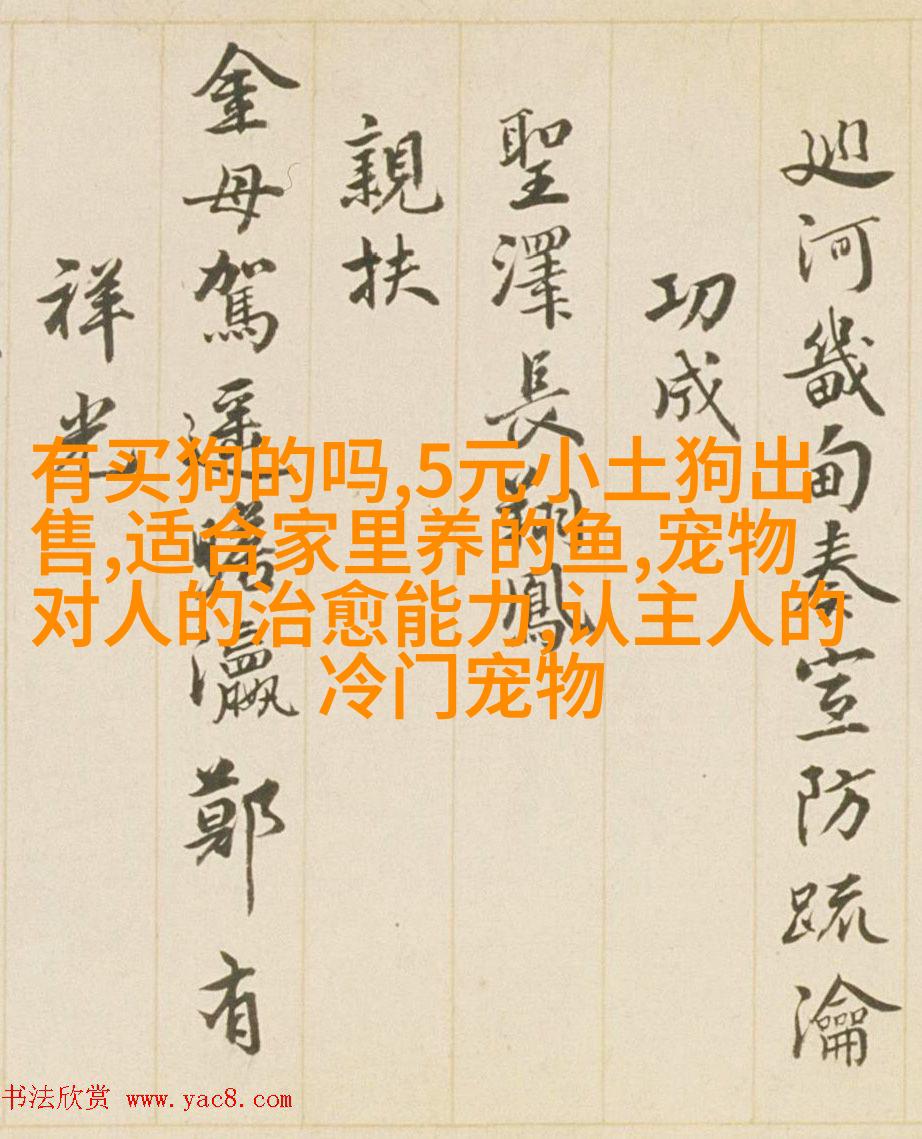 廵河畿甸奏宣防疏瀹
功成
聖澤長翔鳳
親扶
金母駕遥瞻瀛鄭有
祥光
有买狗的吗,5元小土狗出
售,适合家里养的鱼,宠物
对人的治愈能力,认主人的
冷门宠物
书法欣赏 www.yac8.com